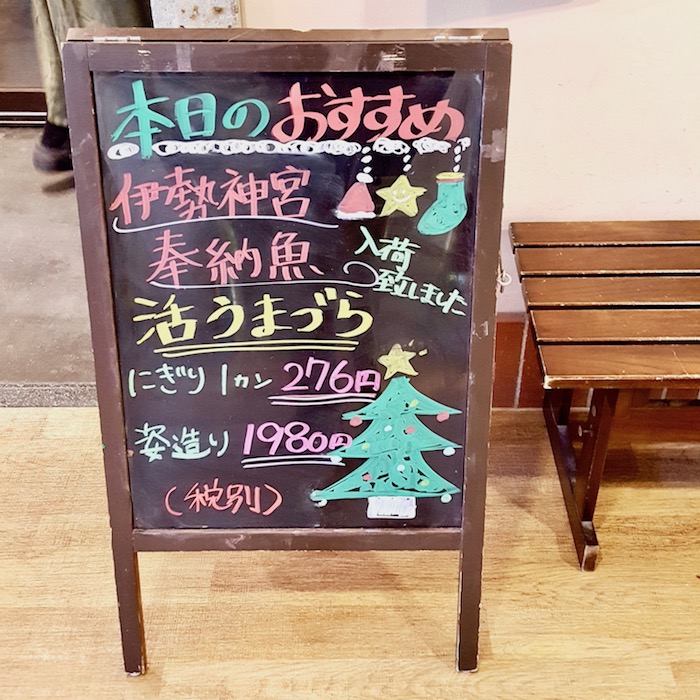 本日のおすすめ
伊勢神宮
奉納魚
入荷
致しました
活うまづら
にぎり1カン 276円
姿造り 1980円
(税別)